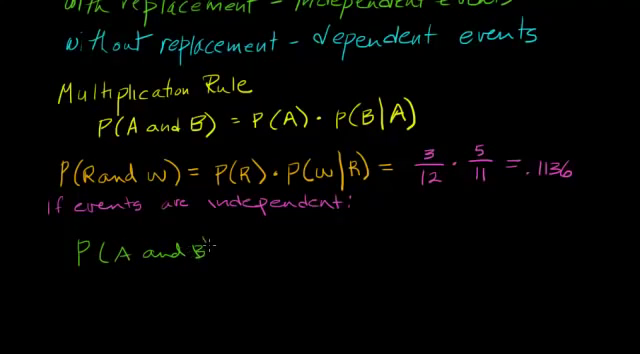 with replacement - independent events
without replacement - dependent events
Multiplication Rule
P(A and B) = P(A) · P(B|A)
P(R and W) = P(R) · P(W|R) = 3/12 · 5/11 = .1136
If events are independent:
P(A and B